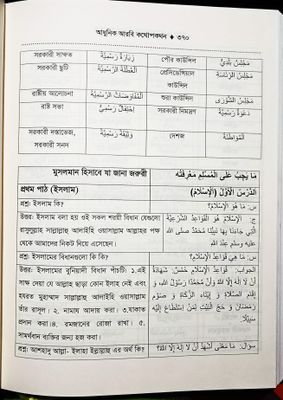 আধুনিক আরবি কথোপকথন ♦ ৩৭০
সরকারী সাক্ষাত
زِيَارَةٌ رَسْمِيَّةٌ
পৌর কাউন্সিল
مَجْلِسٌ بَلَدِيٌّ
সরকারী ছুটি
العُطْلَةُ الرَّسْمِيَّةُ
প্রেসিডেন্সিয়াল
কাউন্সিল
مَجْلِسُ الرِّئَاسَةِ
রাষ্ট্রীয় আলোচনা
المُفَاوَضَاتُ الرَّسْمِيَّةُ
শুরা কাউন্সিল
مَجْلِسُ الشُّوْرَى
রাষ্ট্র সভা
اِحْتِفَالٌ رَسْمِيٌّ
সরকারি নিমন্ত্রণ
دَعْوَةٌ رَسْمِيَّةٌ
সরকারী দস্তাবেজ,
সরকারী সনদ
وَثِيْقَةٌ رَسْمِيَّةٌ
দেশজ
المُوَاطَنَةُ
মুসলমান হিসাবে যা জানা জরুরী
مَا يَجِبُ عَلَى المُسْلِمِ مَعْرِفَتُه
প্রথম পাঠ (ইসলাম)
الدَّرْسُ الأَوَّلُ (الإِسْلَامُ)
প্রশ্ন: ইসলাম কি?
س: مَا هُوَ الإِسْلَامُ؟
উত্তর: ইসলাম বলা হয় ওই সকল শরয়ী বিধান যেগুলো
রাসূলুল্লাহ সাল্লাল্লাহু আলাইহি ওয়াসাল্লাম আল্লাহর পক্ষ
থেকে আমাদের নিকট নিয়ে এসেছেন।
ج: الإِسْلَامُ هُوَ القَوَاعِدُ الشَّرْعِيَّةُ
الَّتِي جَاءَنَا بِهَا نَبِيُّنَا مُحَمَّدٌ صلى الله
عليه وسلم عِنْدِ اللهِ
প্রশ্ন: ইসলামের বিধানগুলো কি কি?
س: مَا هِيَ قَوَاعِدُ الإِسْلَامِ؟
উত্তর: ইসলামের বুনিয়াদী বিধান পাঁচটি: ১.এই
সাক্ষ্য দেয়া যে আল্লাহ ছাড়া কোন ইলাহ নেই এবং
হযরত মুহাম্মাদ সাল্লাল্লাহু আলাইহি ওয়াসাল্লাম
তাঁর রাসূল। ২. নামায আদায় করা। ৩.যাকাত
প্রদান করা। ৪. রমজানের রোজা রাখা। ৫.
সামর্থবান ব্যক্তির জন্য হজ করা।
الجواب: قَوَاعِدُ الإِسْلَامِ خَمْسٌ: شَهَادَةُ
أَنْ لَا إِلٰهَ إِلَّا اللهُ وَأَنَّ مُحَمَّدًا رَسُوْلُ اللهِ، وَ
إِقَامُ الصَّلَاةِ وَ إِيْتَاءُ الزَّكَاةِ وَ صَوْمُ
رَمَضَانَ وَ حَجُّ البَيْتِ لِمَنِ اسْتَطَاعَ إِلَيْهِ
سَبِيْلًا.
প্রশ্ন: আশহাদু আল্লা- ইলাহা ইল্লাল্লাহ এর অর্থ কি?
سؤال: مَا مَعْنَى أَشْهَدُ أَنْ لَا إِلٰهَ إِلَّا اللهُ؟